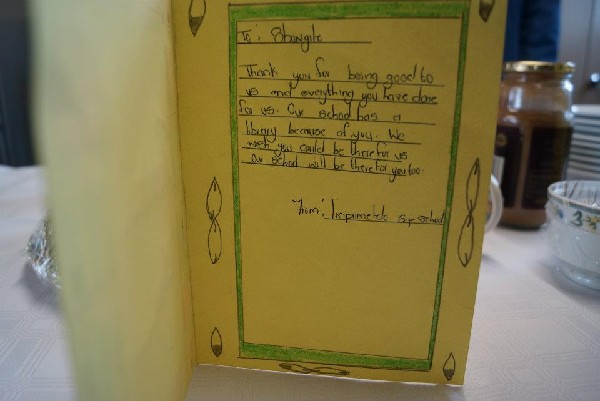 To: Sbongile
Thank you for being good to
us and everything you have done
for us. Our school has a
library because of you. We
wish you could be there for us
Our school will be there for you too.
From: school